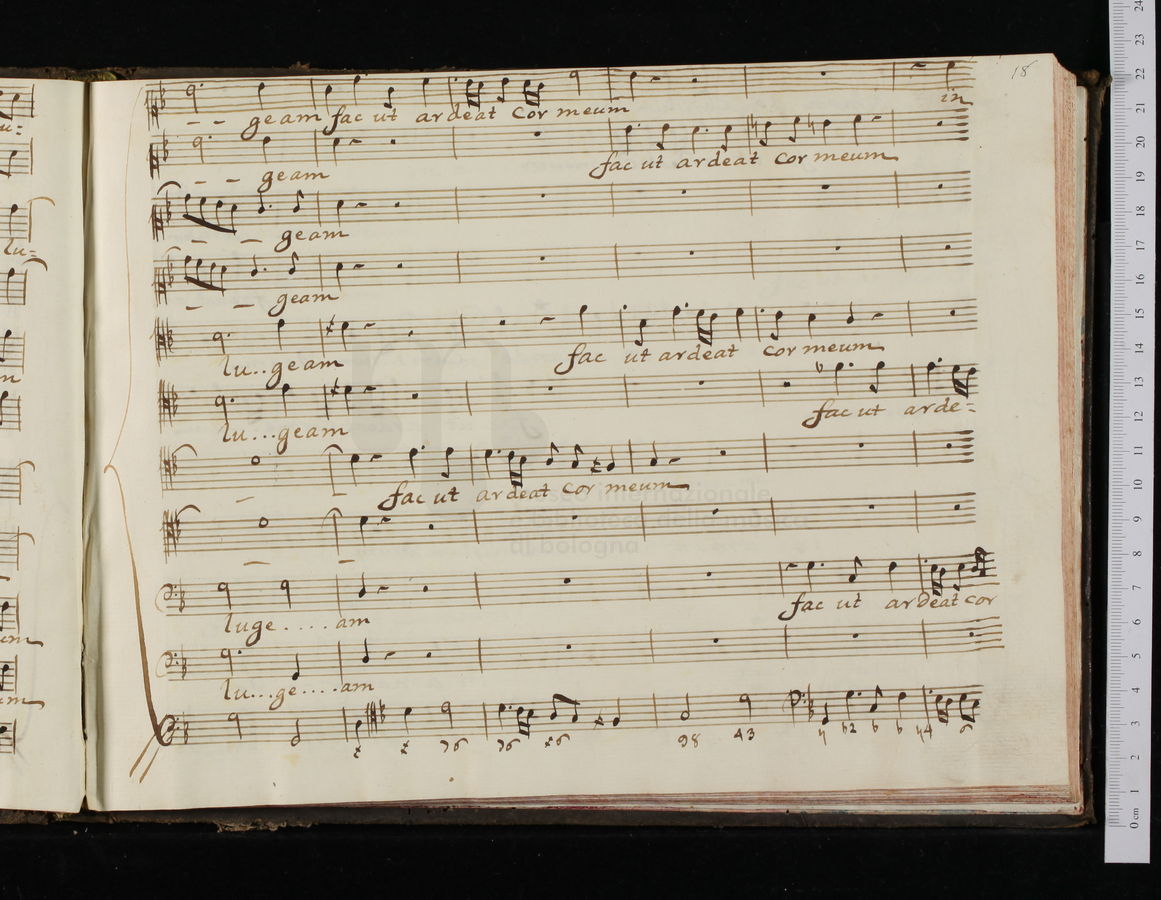 18
geam fac ut ardeat cor meum in
geam fac ut ardeat cor meum
geam
geam
lu..geam fac ut ardeat cor meum
lu...geam fac ut arde=
fac ut ardeat cor meum
luge.....am fac ut ardeat cor
lu...ge....am
98 43
museo internazionale
biblioteca della musica
di bologna